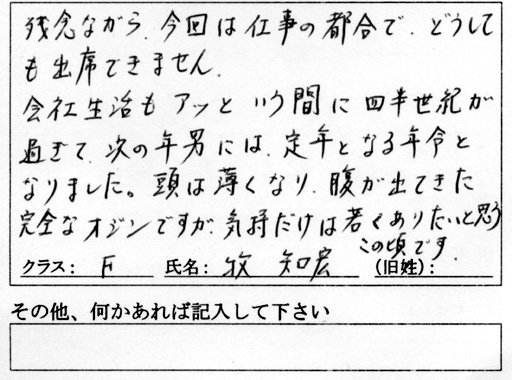 残念ながら、今回は仕事の都合で、どうして
も出席できません。
会社生活もアッという間に四半世紀が
過ぎて、次の年男には、定年となる年令と
なりました。頭は薄くなり、腹が出てきた
完全なオジンですが、気持だけは若くありたいと思う
この頃です。
クラス： F 氏名： 牧 知宏 （旧姓）：
その他、何かあれば記入して下さい